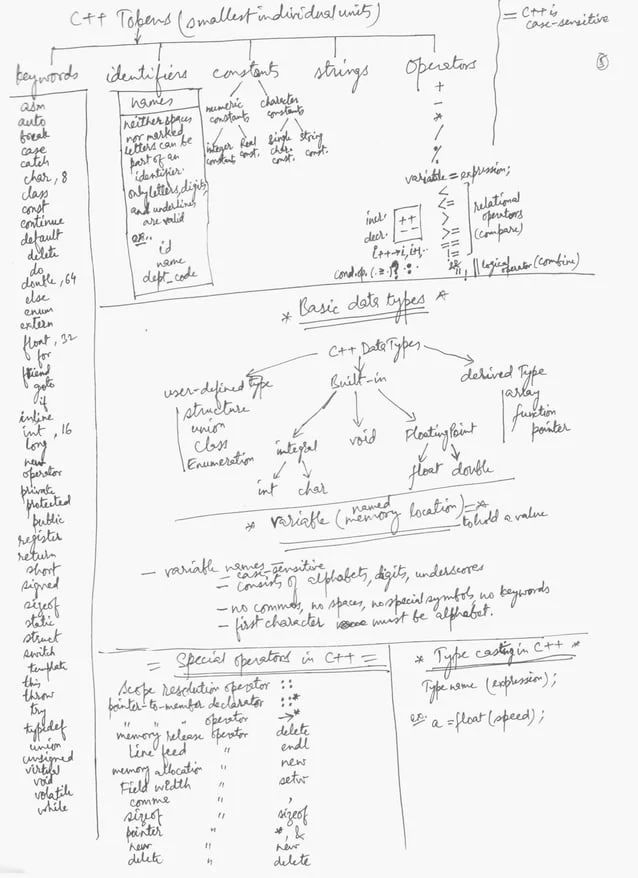 C++ Tokens (smallest individual units)
= C++ is
case-sensitive
5
keywords identifiers constants strings Operators
asm
auto
break
case
catch
char, 8
class
const
continue
default
delete
do
double, 64
else
enum
extern
float, 32
for
friend
goto
if
inline
int, 16
long
new
operator
private
protected
public
register
return
short
signed
sizeof
static
struct
switch
template
this
throw
try
typedef
union
unsigned
virtual
void
volatile
while
names
neither spaces
nor marked
letters can be
part of an
identifier.
only letters, digits,
and underlines
are valid
ex:.
id
name
dept_code
numeric constants
character constants
integer constant
Real const.
Single char. const.
String const.
+
-
*
/
%
variable = expression;
<
<=
>
>=
!=
==
relational
operators
(compare)
incr. ++
decr. --
i++→i, i+1..
&&, || logical operator (combine)
cond. op. ? :
* Basic data types *
C++ Data Types
user-defined type
structure
union
class
Enumeration
Built-in
integral void Floating Point
int char
float double
derived Type
array
function
pointer
* variable (named memory location) = *
to hold a value
- variable names
= case-sensitive
- consists of alphabets, digits, underscores
- no commas, no spaces, no special symbols, no keywords
- first character must be alphabet.
= Special operators in C++ =
scope resolution operator ::
pointer-to-member declarator ::*
" " " operator →*
memory release operator delete
Line feed " endl
memory allocation " new
Field width " setw
comme " ,
sizeof " sizeof
pointer " *, &
new " new
delete " delete
* Type casting in C++ *
Type name (expression);
ex:. a = float (speed);